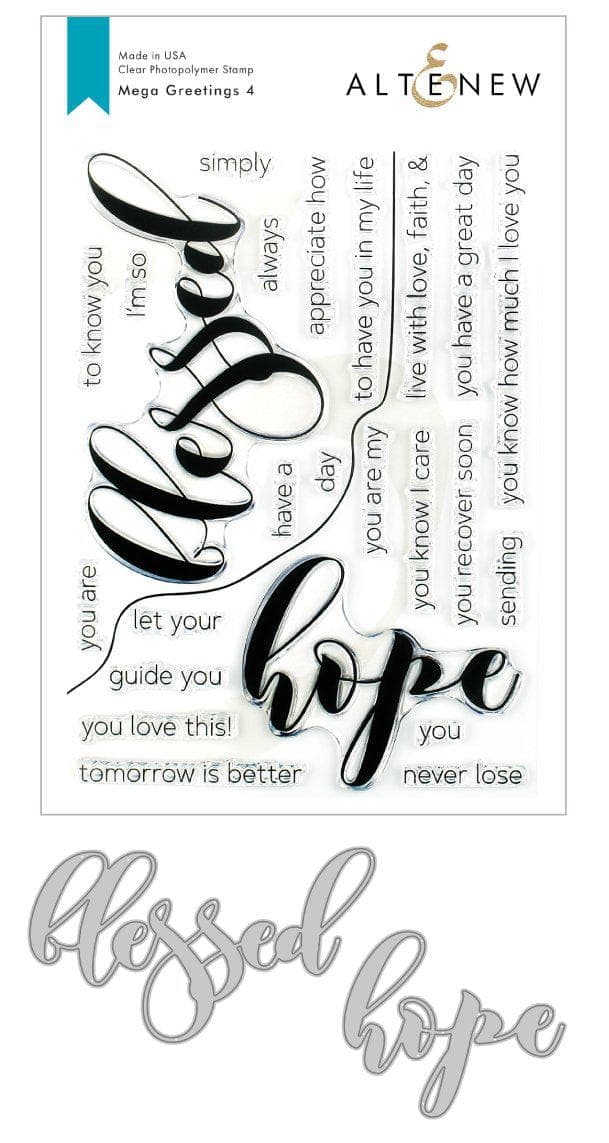 Made in USA
Clear Photopolymer Stamp
Mega Greetings 4
ALTENEW
simply
blessed
to know you
I'm so
always
appreciate how
to have you in my life
live with love, faith, &
you have a great day
you know how much I love you
have a
day
you are my
you know I care
you recover soon
sending
you are
let your
guide you
you love this!
tomorrow is better
hope
you
never lose
blessed
hope